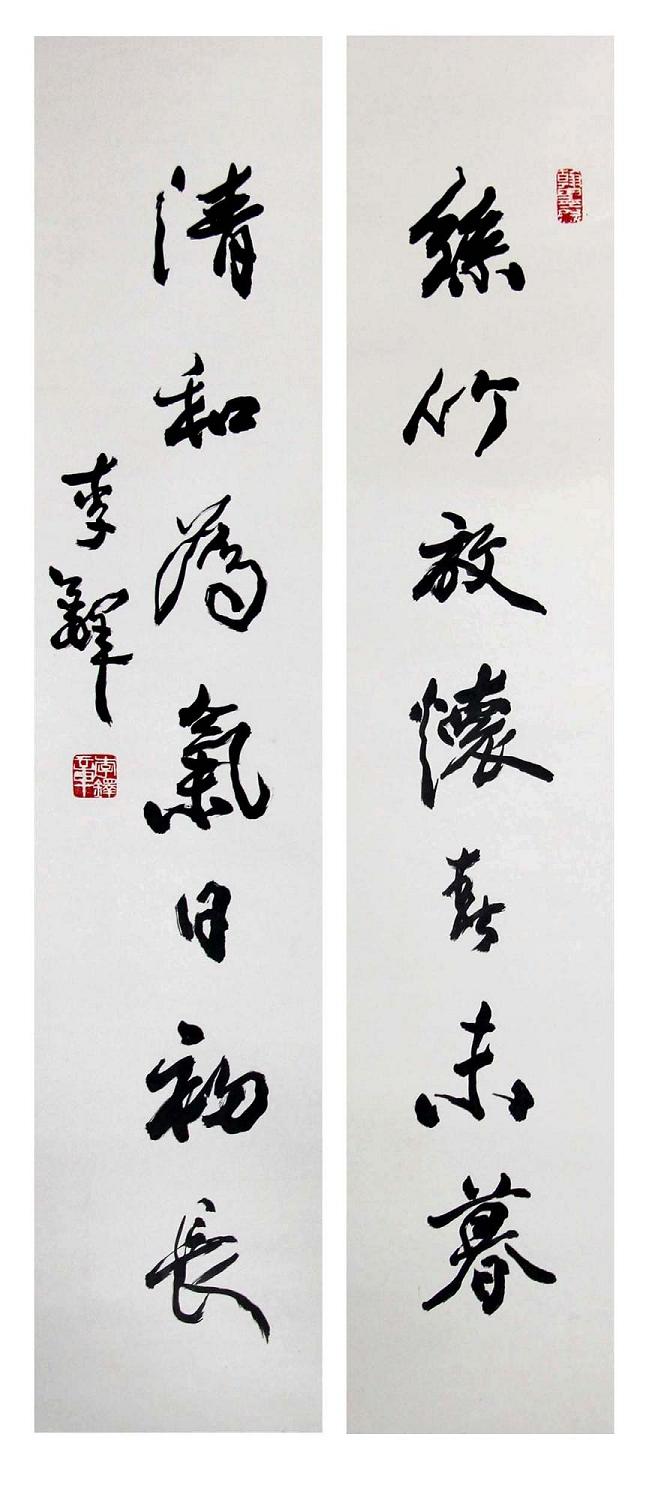 絲竹放懷春未暮
清和為氣日初長
李鐸